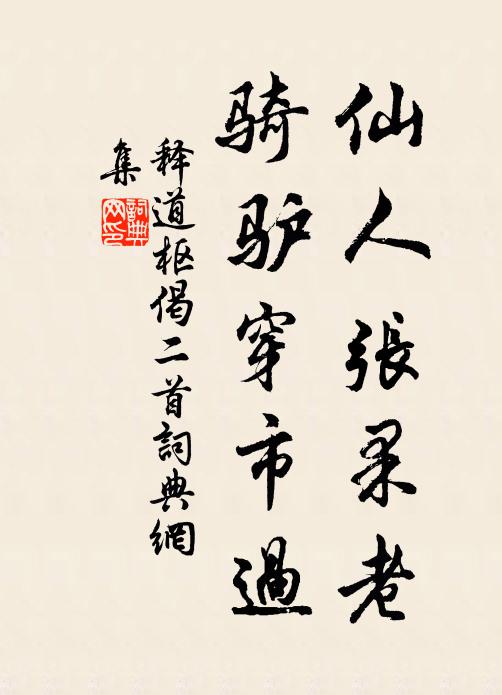 仙人張果老
骑驴穿市過
释道枢偈二首詞典網
集
詞典網印